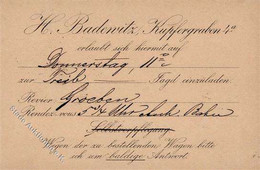 H. Badewitz, Kupfergraben 4a
erlaubt sich hiermit auf
Donnerstag, 11ten
zur Treib Jagd einzuladen.
Revier Groeben
Rendez-vous 5 3/4 Uhr Bahn
Selbstverpflegung
Wegen der zu bestellenden Wagen bitte
ich um baldige Antwort.